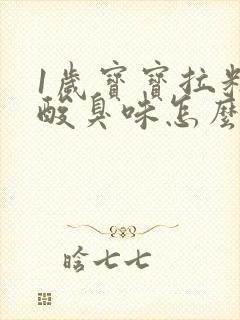 1歲寶寶拉粑
酸臭味怎麼
啥七七